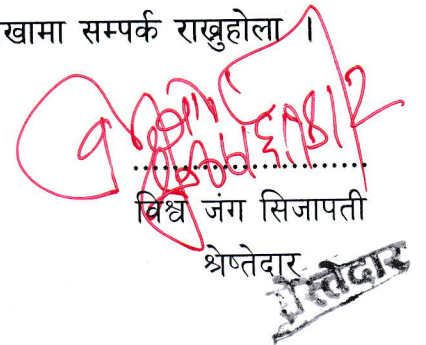 खामा सम्पर्क राख्नुहोला ।
विश्व जंग सिजापती
श्रेष्तेदार
श्रेस्तेदार